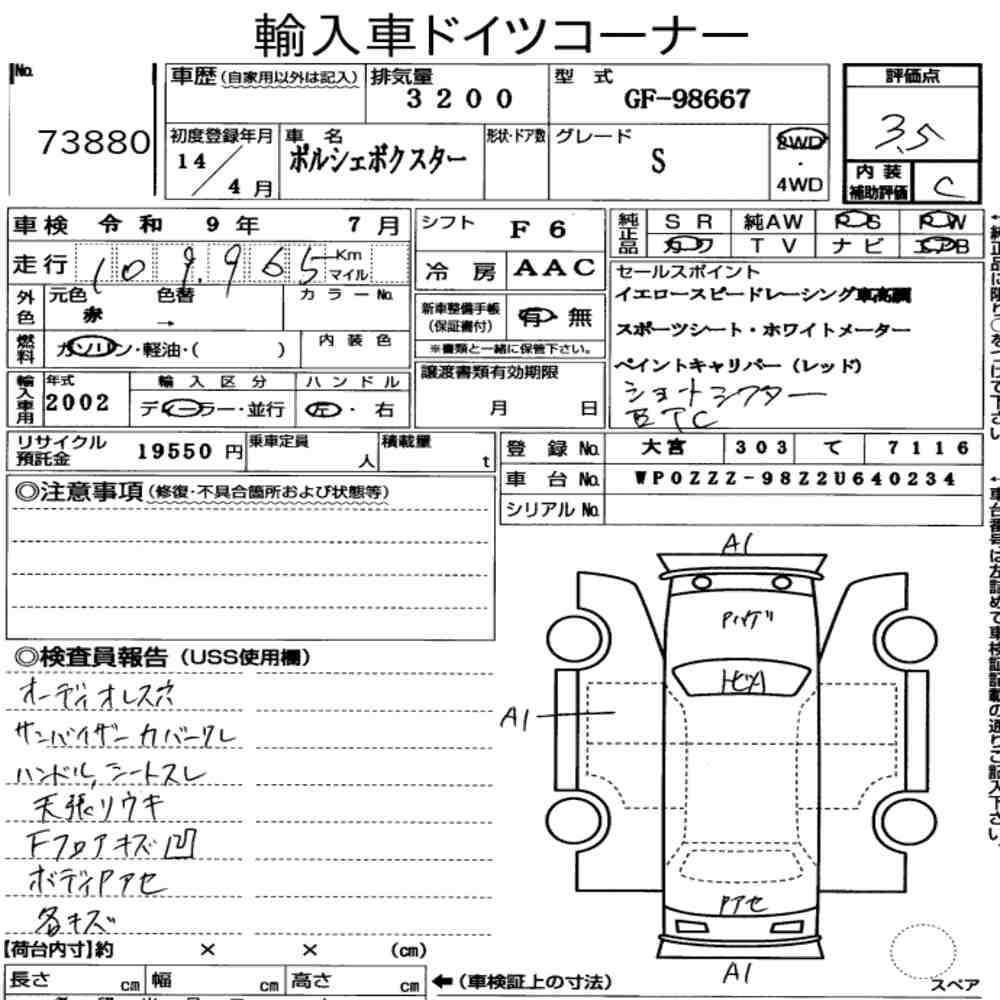 輸入車ドイツコーナー
No.
73880
車歴(自家用以外は記入)
排気量
3200
型 式
GF-98667
評価点
3.5
初度登録年月
14/4月
車 名
ポルシェボクスター
形状・ドア数
グレード
S
2WD
・
4WD
内装補助評価
C
車検 令和 9年 7月
走行 109,965 Km マイル
シフト
F6
冷房
AAC
純正品
SR 純AW PS PW
カワ TV ナビ エアB
外色
元色
赤
色替
→
カラーNo.
燃料
ガソリン・軽油・( )
内装色
新車整備手帳
(保証書付)
有・無
※書類と一緒に保管下さい。
セールスポイント
イエロースピードレーシング車高調
スポーツシート・ホワイトメーター
ペイントキャリパー(レッド)
ショートシフター
ETC
輸入車用
年式
2002
輸入区分
ディーラー・並行
ハンドル
左・右
譲渡書類有効期限
月 日
リサイクル預託金
19550円
乗車定員
人
積載量
t
登録No.
大宮 303 て 7116
車台No.
WP0ZZZ-98Z2U640234
シリアルNo.
◎注意事項(修復・不具合箇所および状態等)
◎検査員報告(USS使用欄)
オーディオレス穴
サンバイザーカバーワレ
ハンドル,シートスレ
天張リウキ
Fフロアキズ凹
ボディPアセ
各キズ
A1
トビA
A1
Pアセ
A1
【荷台内寸】約 × × (cm)
長さ cm 幅 cm 高さ cm
←(車検証上の寸法)
スペア